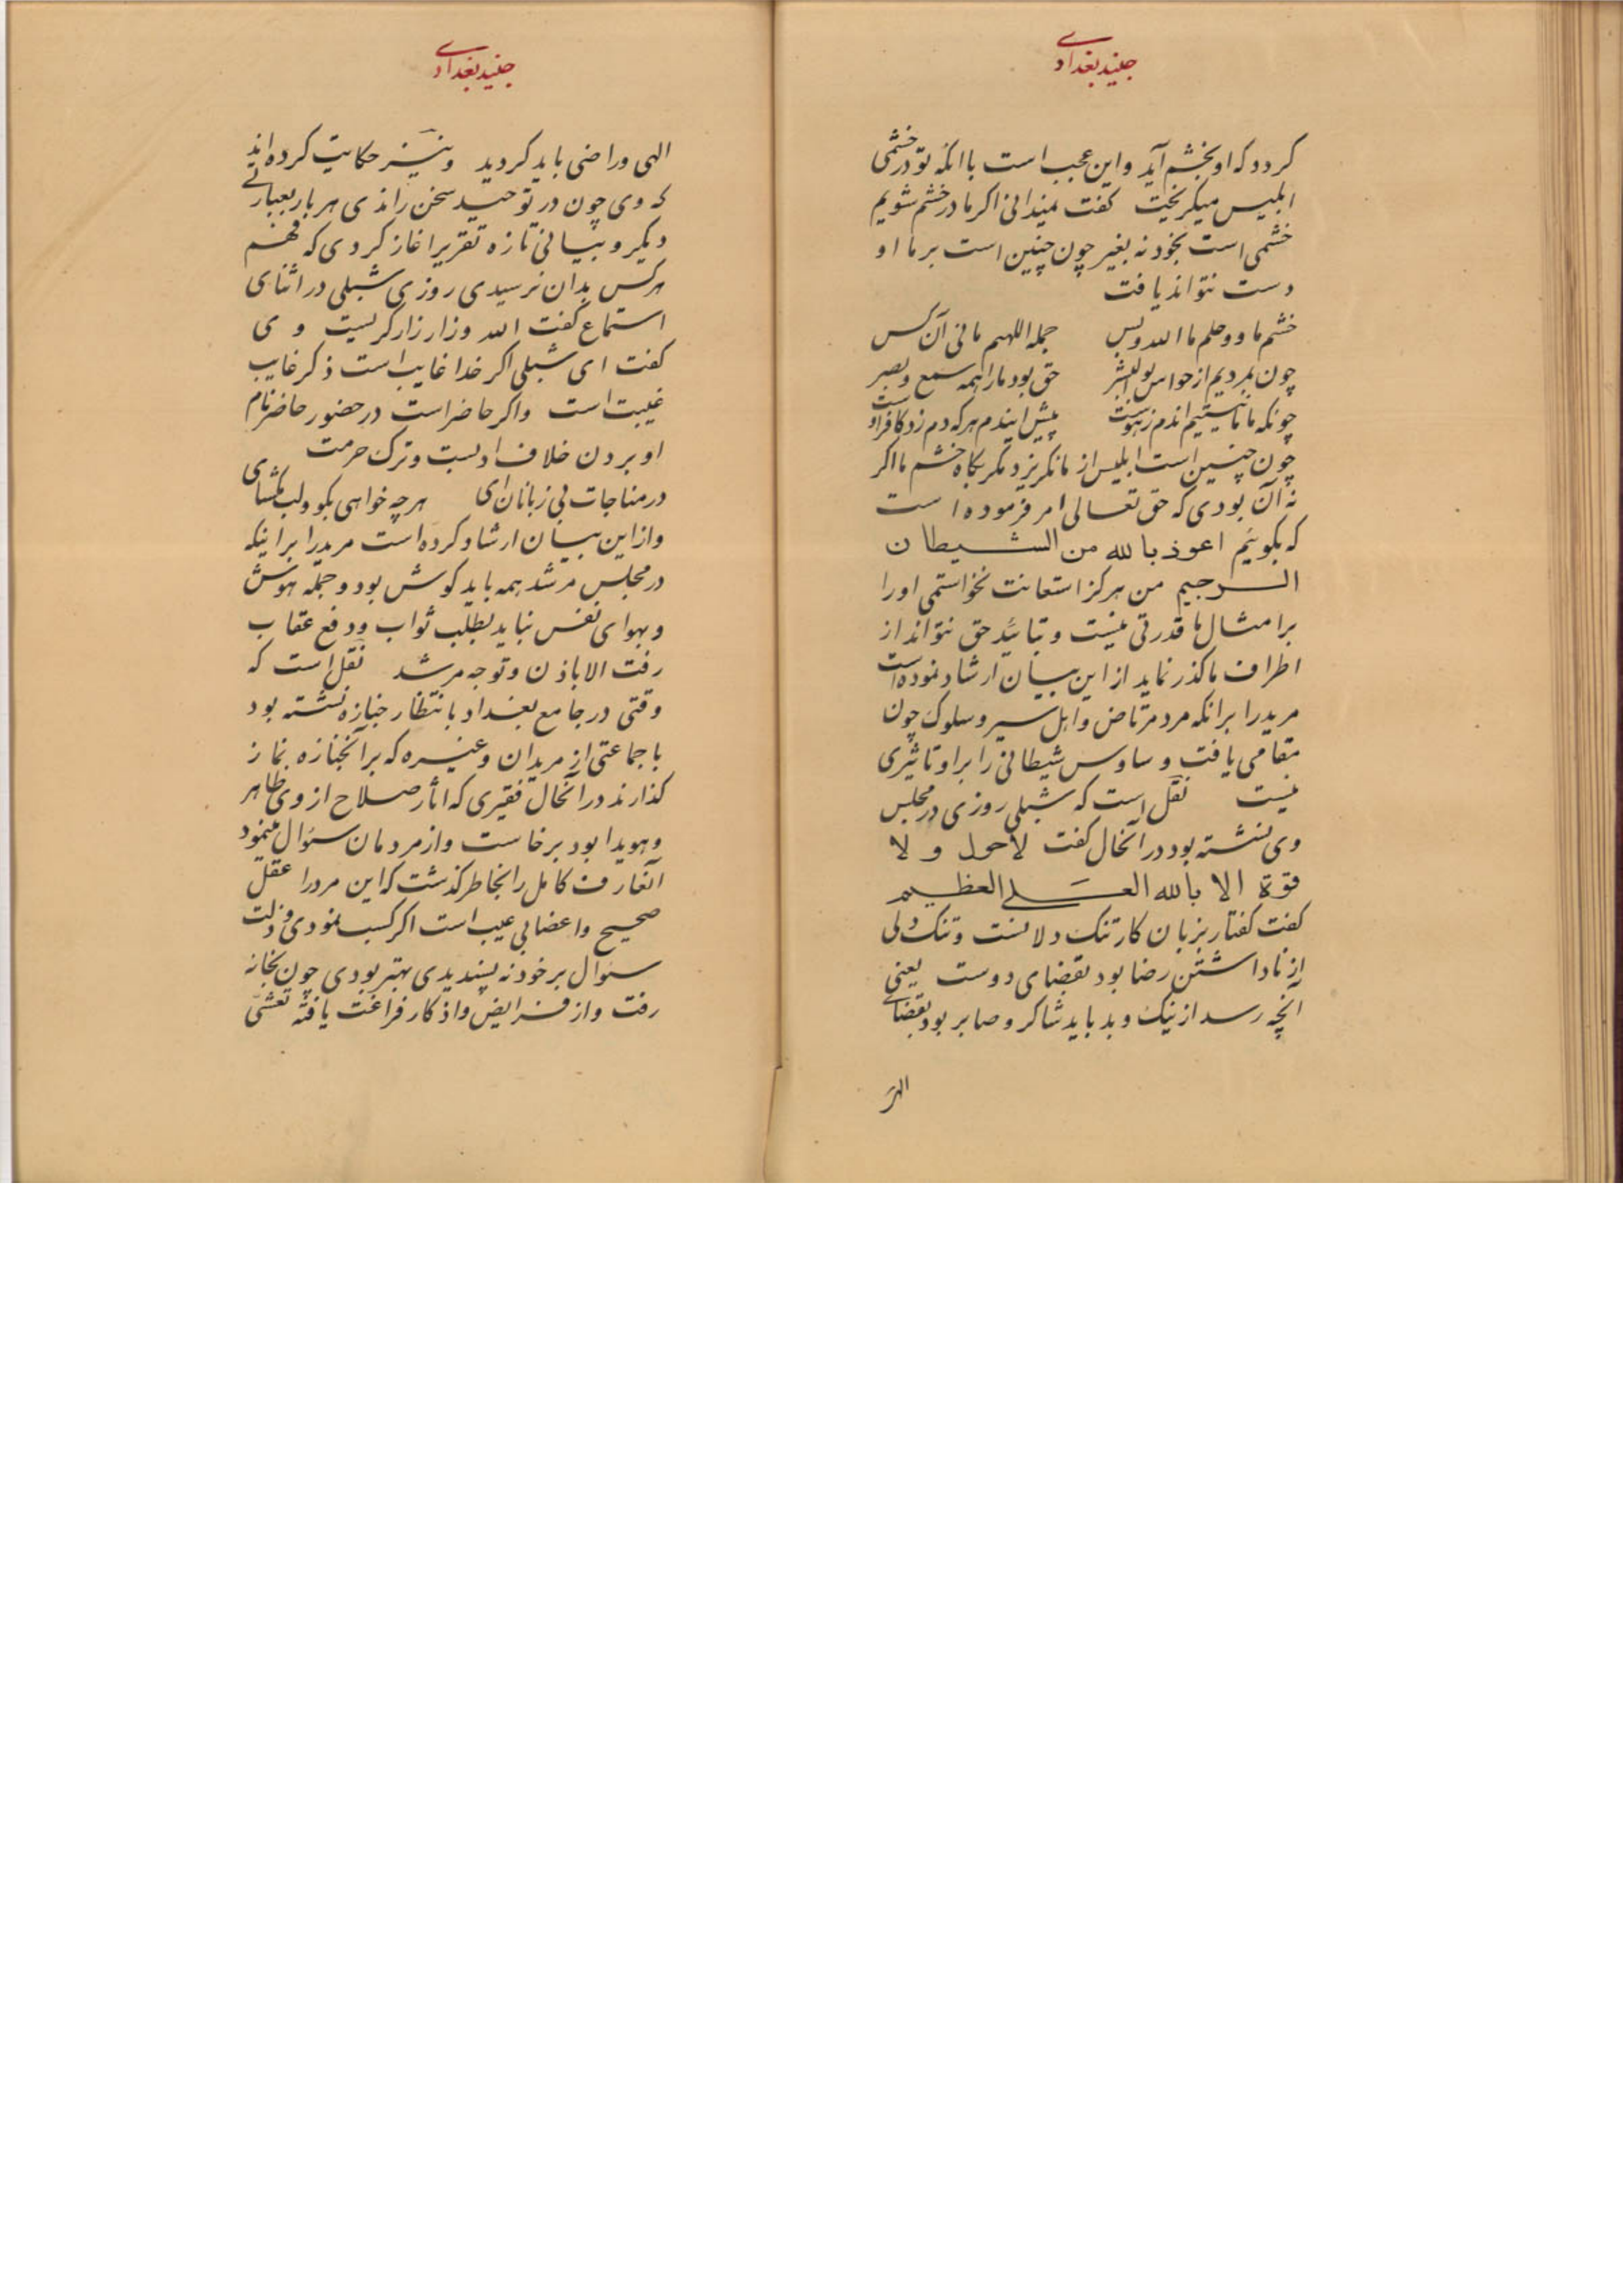 جنید بغدادی
کردد که او بخشم آید و این عجب است با انکه تو در خشمی
ابلیس میکریخت کفت نمیدانی اکر ما در خشم شویم
خشمی است بخود نه بغیر چون چنین است بر ما او
دست نتواند یافت
خشم ما وحلم ما الله وبس جمله اللهیم مانی آن کس
چون بمردیم از حواس بوالبشر حق بود ما را همه سمع و بصر
چونکه ما ما نیستیم این دم ز هوست پیش این دم هر که دم زد کافر اوست
چون چنین است ابلیس از ما نکریزد مکر بکاه خشم ما اکر
نه آن بودی که حق تعالی امر فرموده است
که بکوئیم اعوذ بالله من الشیطان
الرجیم من هرکز استعانت نخواستمی او را
بر امثال ما قدرتی نیست و بتائید حق نتواند از
اطراف ما کذر نماید از این بیان ارشاد نموده است
مرید را بر انکه مرد مرتاض و اهل سیر و سلوک چون
مقامی یافت وساوس شیطانی را بر او تاثیری
نیست نقل است که شبلی روزی در مجلس
وی نشسته بود در آنحال کفت لاحول و لا
قوة الا بالله العلی العظیم
کفت کفتار بزبان کار تنک دلانست و تنک دلی
از ناداشتن رضا بود بقضای دوست یعنی
آنچه رسد از نیک و بد باید شاکر و صابر بود بقضای
الهی
جنید بغدادی
الهی و راضی باید کردید و نیز حکایت کرده اند
که وی چون در توحید سخن راندی هر بار بعبارتی
دیکر و بیانی تازه تقریر اغاز کردی که فهم
هر کس بدان نرسیدی روزی شبلی در اثنای
استماع کفت الله و زار زار کریست وی
کفت ای شبلی اکر خدا غایب است ذکر غایب
غیبت است و اکر حاضر است در حضور حاضر نام
او بردن خلاف ادبست و ترک حرمت
در مناجات بی زبانان ای هر چه خواهی بکو و لب مکشای
و از این بیان ارشاد کرده است مرید را بر اینکه
در مجلس مرشد همه باید کوش بود و جمله هوش
و بهوای نفس نباید بطلب ثواب و دفع عقاب
رفت الا باذن و توجه مرشد نقل است که
وقتی در جامع بغداد بانتظار جنازه نشسته بود
با جماعتی از مریدان و غیره که بر آنجنازه نماز
کذارند در آنحال فقیری که اثار صلاح از وی ظاهر
و هویدا بود برخاست و از مردمان سئوال مینمود
آنعارف کامل را بخاطر کذشت که این مرد را عقل
صحیح و اعضا بی عیب است اکر کسب نمودی و ذلت
سئوال بر خود نه پسندیدی بهتر بودی چون بخانه
رفت و از فرایض و اذکار فراغت یافته تعشی